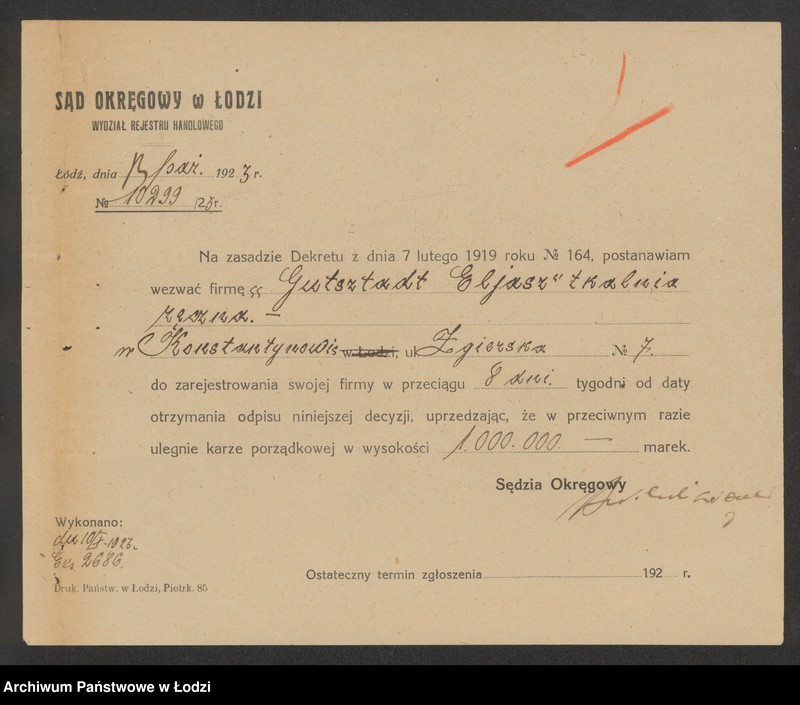 SĄD OKRĘGOWY w ŁODZI
WYDZIAŁ REJESTRU HANDLOWEGO
Łódź, dnia paź. 1923 r.
№ 10299 /23 r.
Na zasadzie Dekretu z dnia 7 lutego 1919 roku № 164, postanawiam
wezwać firmę „Gutsztadt Eljasz" tkalnia
ręczna. —
w Konstantynowie w Łodzi, ul. Zgierska № 7.
do zarejestrowania swojej firmy w przeciągu 8 dni. tygodni od daty
otrzymania odpisu niniejszej decyzji, uprzedzając, że w przeciwnym razie
ulegnie karze porządkowej w wysokości 1.000.000. — marek.
Sędzia Okręgowy
Wykonano:
1923 r.
2686.
Ostateczny termin zgłoszenia 192 r.
Druk. Państw. w Łodzi, Piotrk. 85
Archiwum Państwowe w Łodzi